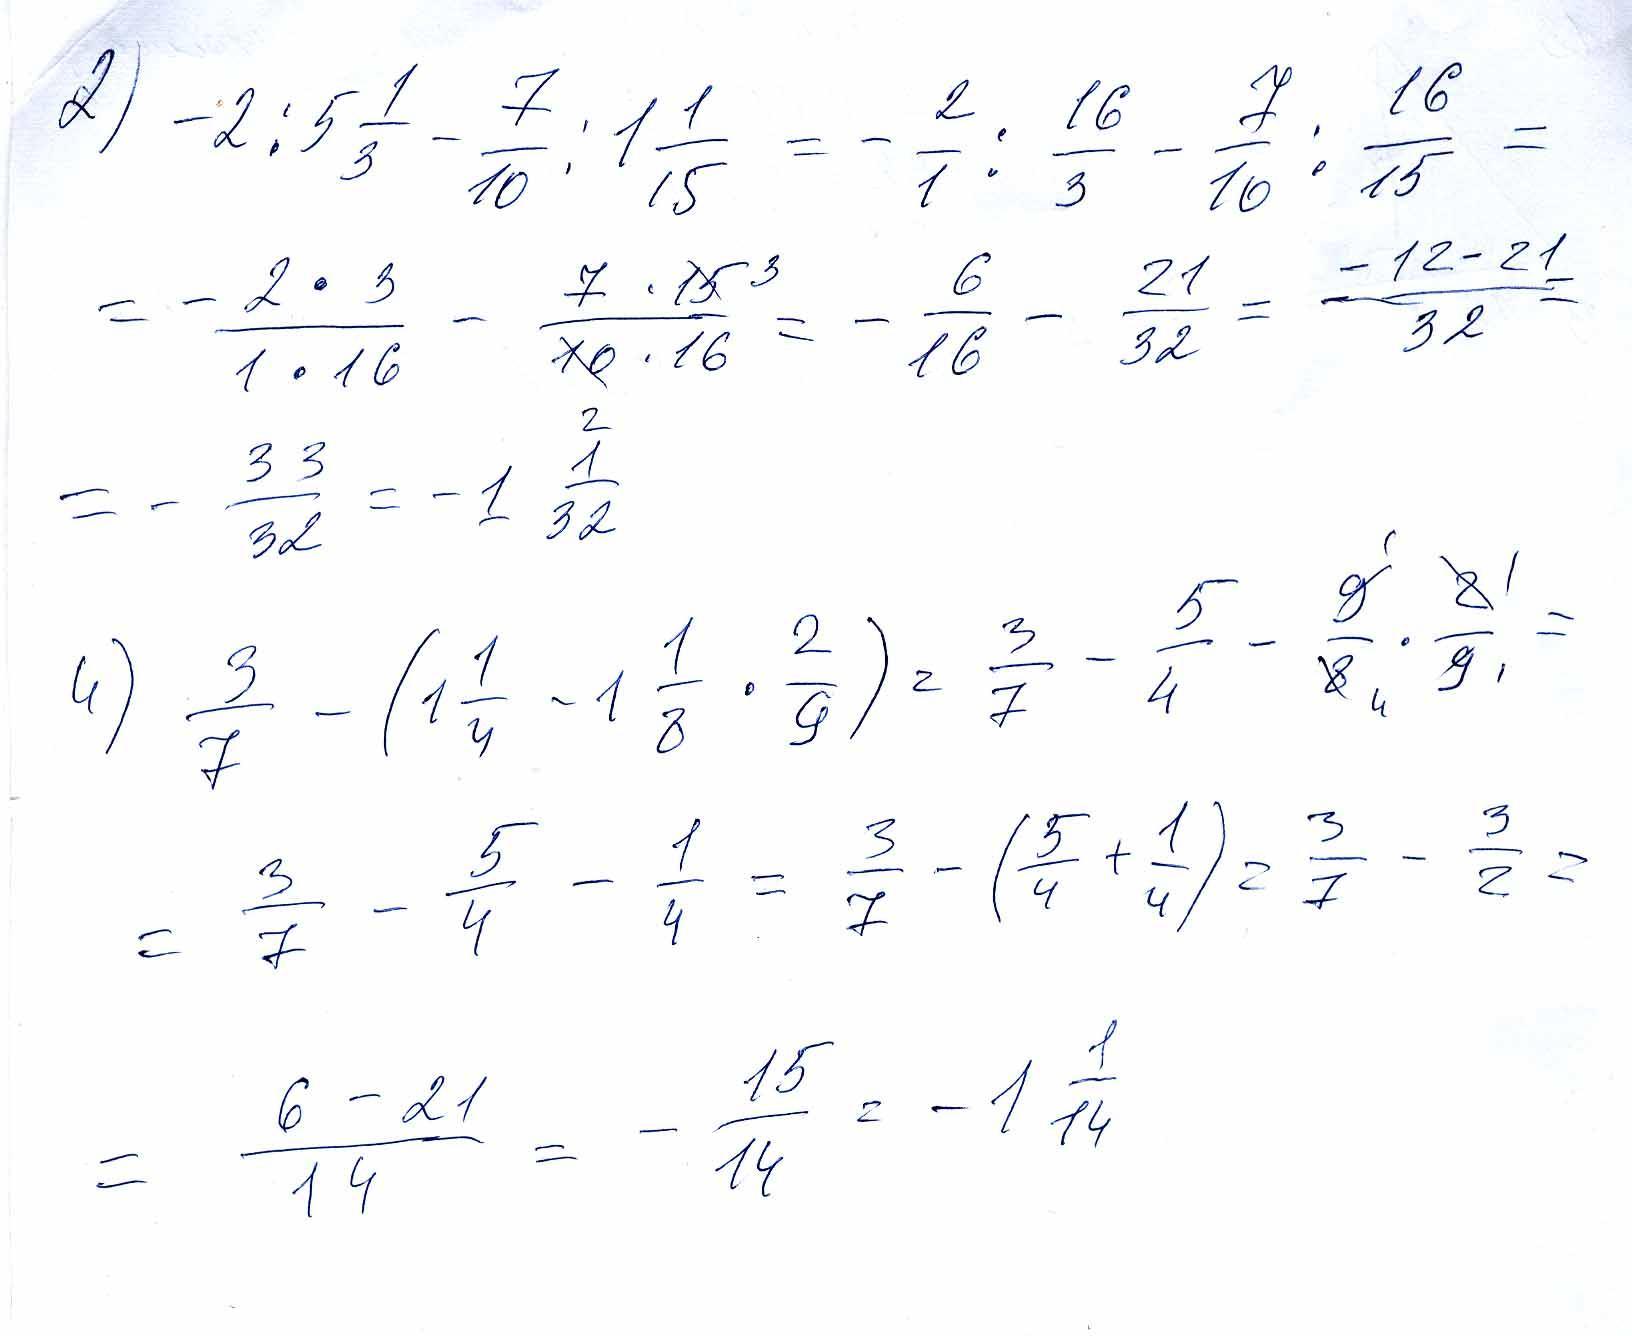 2) -2 : 5 1/3 - 7/10 : 1 1/15 = - 2/1 : 16/3 - 7/10 : 16/15 =
= - (2 · 3)/(1 · 16) - (7 · 15 3)/(10 · 16) = - 6/16 - 21/32 = (-12-21)/32 =
= - 33/32 = -1 1/32 2
4) 3/7 - (1 1/4 - 1 1/8 · 2/9) = 3/7 - 5/4 - 9 1/8 4 · 2 1/9 1 =
= 3/7 - 5/4 - 1/4 = 3/7 - (5/4 + 1/4) = 3/7 - 3/2 =
= (6 - 21)/14 = - 15/14 = -1 1/14